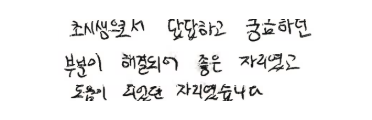 초시생으로서 답답하고 궁금하던
부분이 해결되어 좋은 자리였고
도움이 되었던 자리였습니다